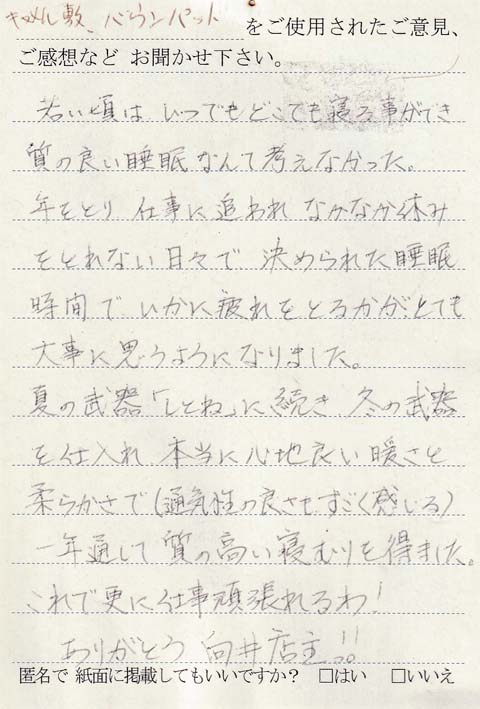 キャメル敷、バウンパット をご使用されたご意見、
ご感想など お聞かせ下さい。
若い頃は いつでもどこでも寝る事ができ
質の良い睡眠なんて考えなかった。
年をとり 仕事に追われ なかなか休み
をとれない日々で 決められた睡眠
時間で いかに疲れをとるかが、とても
大事に思うようになりました。
夏の武器「しとね」に続き 冬の武器
を仕入れ 本当に心地良い暖さと
柔らかさで(通気性の良さもすごく感じる)
一年通して 質の高い寝むりを得ました。
これで更に仕事頑張れるわ!
ありがとう 向井店主!!
匿名で 紙面に掲載してもいいですか? □はい □いいえ